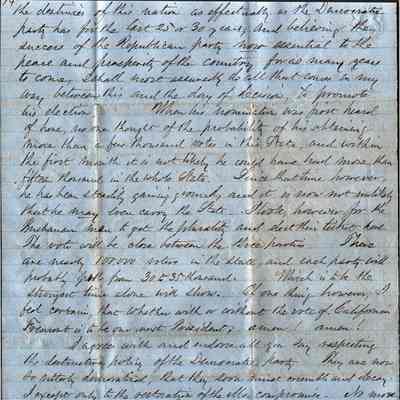 the destinies of this nation as effectually as the Democratic
party has for the last 25 or 30 years, and believing the
success of the Republican party now essential to the
peace and prosperity of the country for as many years
to come, I shall most assuredly do all that comes in my
way between this and the day of decision, to promote
his election. When his nomination was first heard
of here, no one thought of the probability of his obtaining
more than a few thousand votes in this State, and within
the first month it is not likely he could have had more than
fifteen thousand in the whole State. Since that time however,
he has been steadily gaining ground, and it is now not unlikely
that he may even carry the State. I look, however, for the
Buchanan men to get the plurality and elect their ticket, but
the vote will be close between the three parties. There
are nearly 100.000 voters in the State, and each party will
probably poll from 30 to 35 thousand. Which is to be the
strongest time alone will show. Of one thing, however, I
feel certain, that whether with or without the vote of California
Fremont is to be our next President, amen! amen!
I agree with and endorse all you say respecting
the destructive policy of the Democratic party. They are now
so utterly demoralized, that they soon must crumble and decay
I except only to the restoration of the Mo. compromise. No more